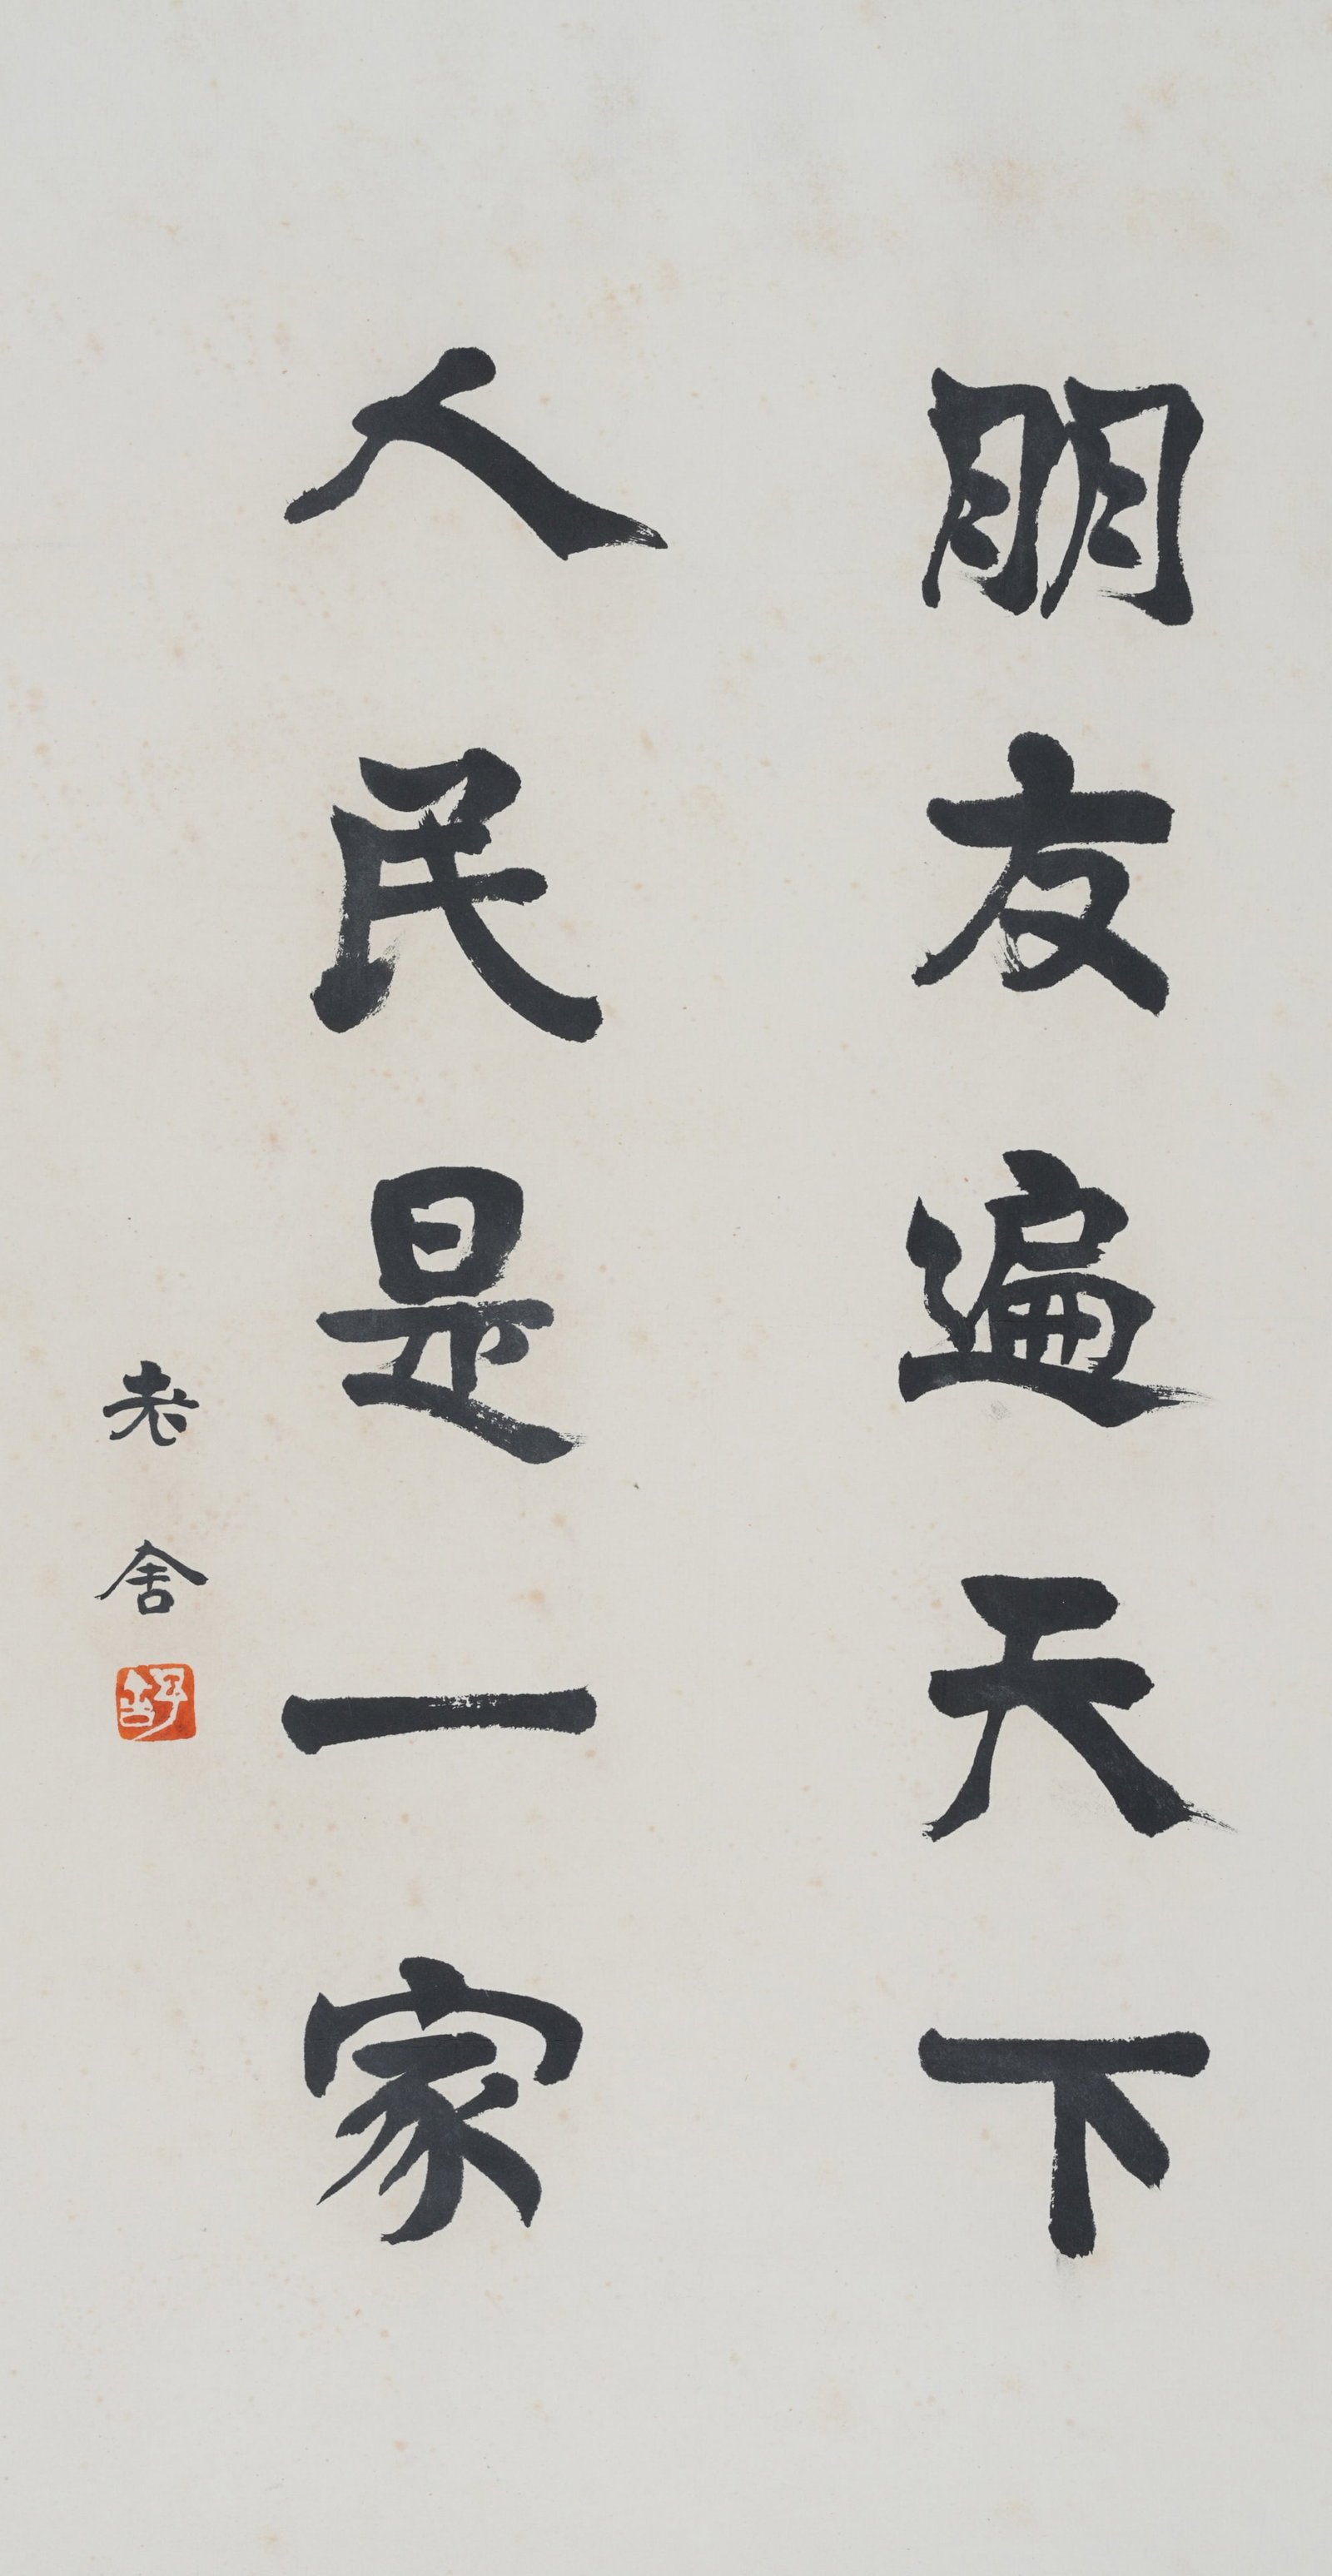 朋友遍天下
人民是一家
老舍
舒